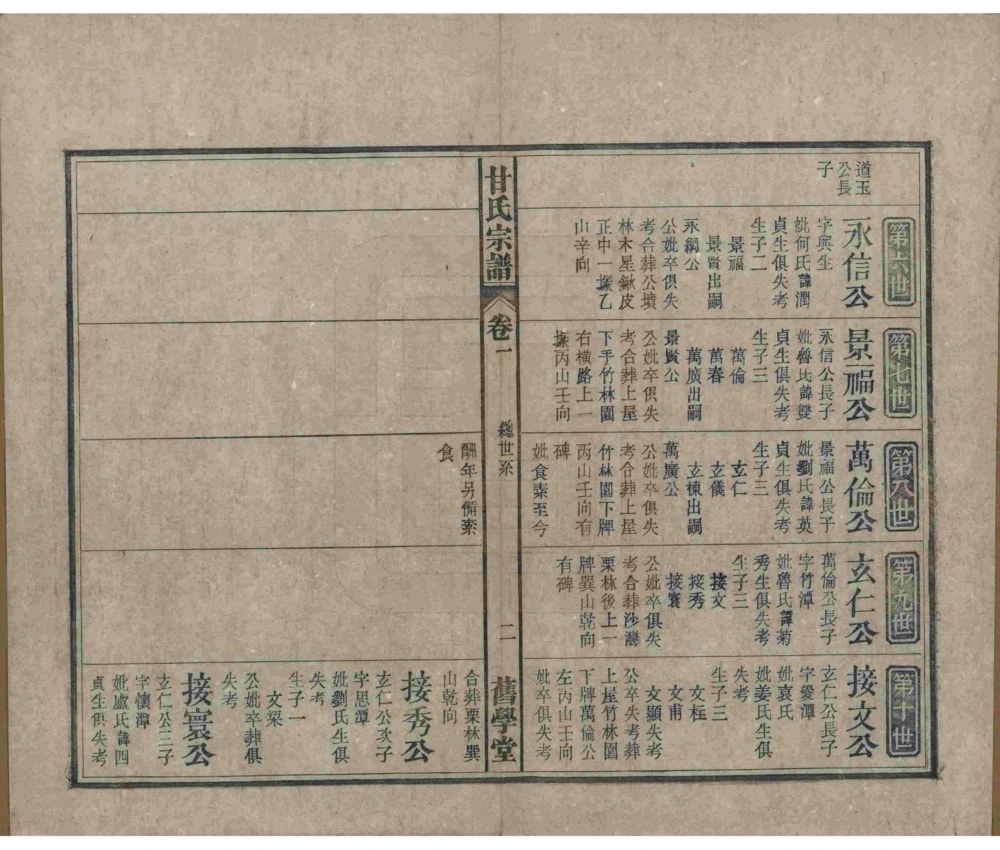 道玉
公長
子
第六世
永信公
字興生
妣何氏諱潤
貞生俱失考
生子二
景福
景賢出嗣
永綱公
公妣卒俱失
考合葬公墳
林木星鍬皮
正中一塜乙
山辛向
第七世
景福公
永信公長子
妣魯氏諱雙
貞生俱失考
生子三
萬倫
萬春
萬廣出嗣
景賢公
公妣卒俱失
考合葬上屋
下手竹林園
右横路上一
塜丙山壬向
第八世
萬倫公
景福公長子
妣劉氏諱英
貞生俱失考
生子三
玄仁
玄儀
玄棟出嗣
萬廣公
公妣卒俱失
考合葬上屋
竹林園下牌
丙山壬向有
碑
妣食素至今
酬年另備素
食
第九世
玄仁公
萬倫公長子
字竹潭
妣魯氏諱菊
秀生俱失考
生子三
接文
接秀
接寰
公妣卒俱失
考合葬沙灣
栗林後上一
牌巽山乾向
有碑
第十世
接文公
玄仁公長子
字愛潭
妣袁氏
妣姜氏生俱
失考
生子三
文柱
文甫
文顯失考
公卒失考葬
上屋竹林園
下牌萬倫公
左丙山壬向
妣卒俱失考
合葬栗林巽
山乾向
接秀公
玄仁公次子
字思潭
妣劉氏生俱
失考
生子一
文梁
公妣卒葬俱
失考
接寰公
玄仁公三子
字懷潭
妣盧氏諱四
貞生俱失考
甘氏宗譜
卷一
總世系
二
舊學堂